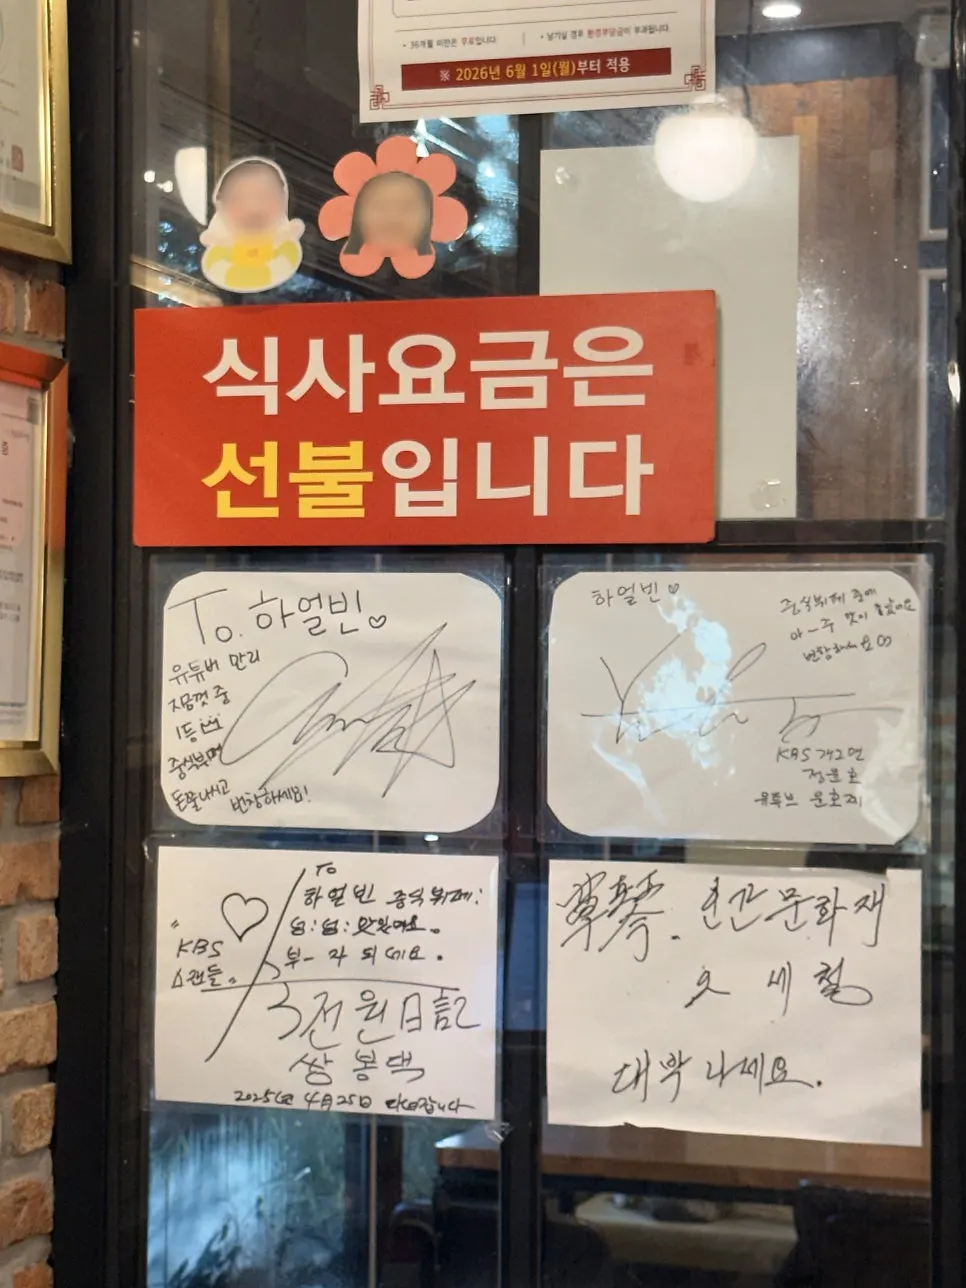 • 36개월 미만은 무료입니다
• 남기실 경우 환경부담금이 부과됩니다
※ 2026년 6월 1일(월)부터 적용
식사요금은
선불입니다
To. 하얼빈♡
유튜버 만리
지금껏 중
1등
중식뷔페
돈쭐내시고 번창하세요!
하얼빈♡
중식뷔페 중에
아~주 맛이 좋았어요
번창하세요
KBS 개그맨
정윤호
유튜브 윤호찌
To
하얼빈 중식뷔페!
넘! 넘! 맛있어요.
부~자 되세요.
"KBS
스캔들"
3천원日記
쌍봉댁
2025년 4月 25日 다녀갑니다
인간문화재
오세철
대박나세요.